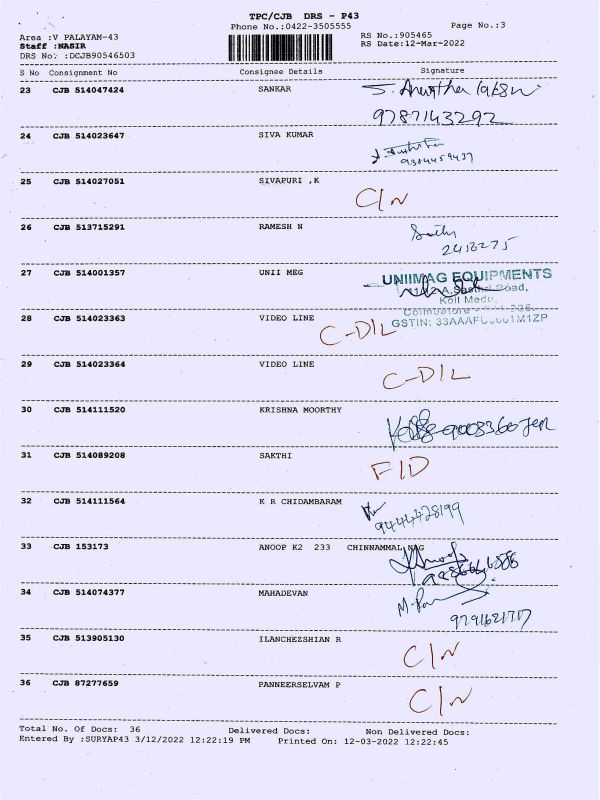 TPC/CJB DRS - P43
Phone No.:0422-3505555 Page No.:3
Area :V PALAYAM-43 RS No.:905465
Staff :NASIR RS Date:12-Mar-2022
DRS No. :DCJB90546503
S No Consignment No Consignee Details Signature
23 CJB 514047424 SANKAR
9787143292
24 CJB 514023647 SIVA KUMAR
25 CJB 514027051 SIVAPURI ,K
C/N
26 CJB 513715291 RAMESH N
2418275
27 CJB 514001357 UNII MEG UNIIMAG EQUIPMENTS
Road,
Koil Medu,
Coimbatore
28 CJB 514023363 VIDEO LINE C-D/L
GSTIN:
29 CJB 514023364 VIDEO LINE
C-D/L
30 CJB 514111520 KRISHNA MOORTHY
31 CJB 514089208 SAKTHI
F/D
32 CJB 514111564 K R CHIDAMBARAM
9444428199
33 CJB 153173 ANOOP K2 233 CHINNAMMAL NAG
Anoop
34 CJB 514074377 MAHADEVAN
9791621717
35 CJB 513905130 ILANCHEZSHIAN R
C/N
36 CJB 87277659 PANNEERSELVAM P
C/N
Total No. Of Docs: 36 Delivered Docs: Non Delivered Docs:
Entered By :SURYAP43 3/12/2022 12:22:19 PM Printed On: 12-03-2022 12:22:45